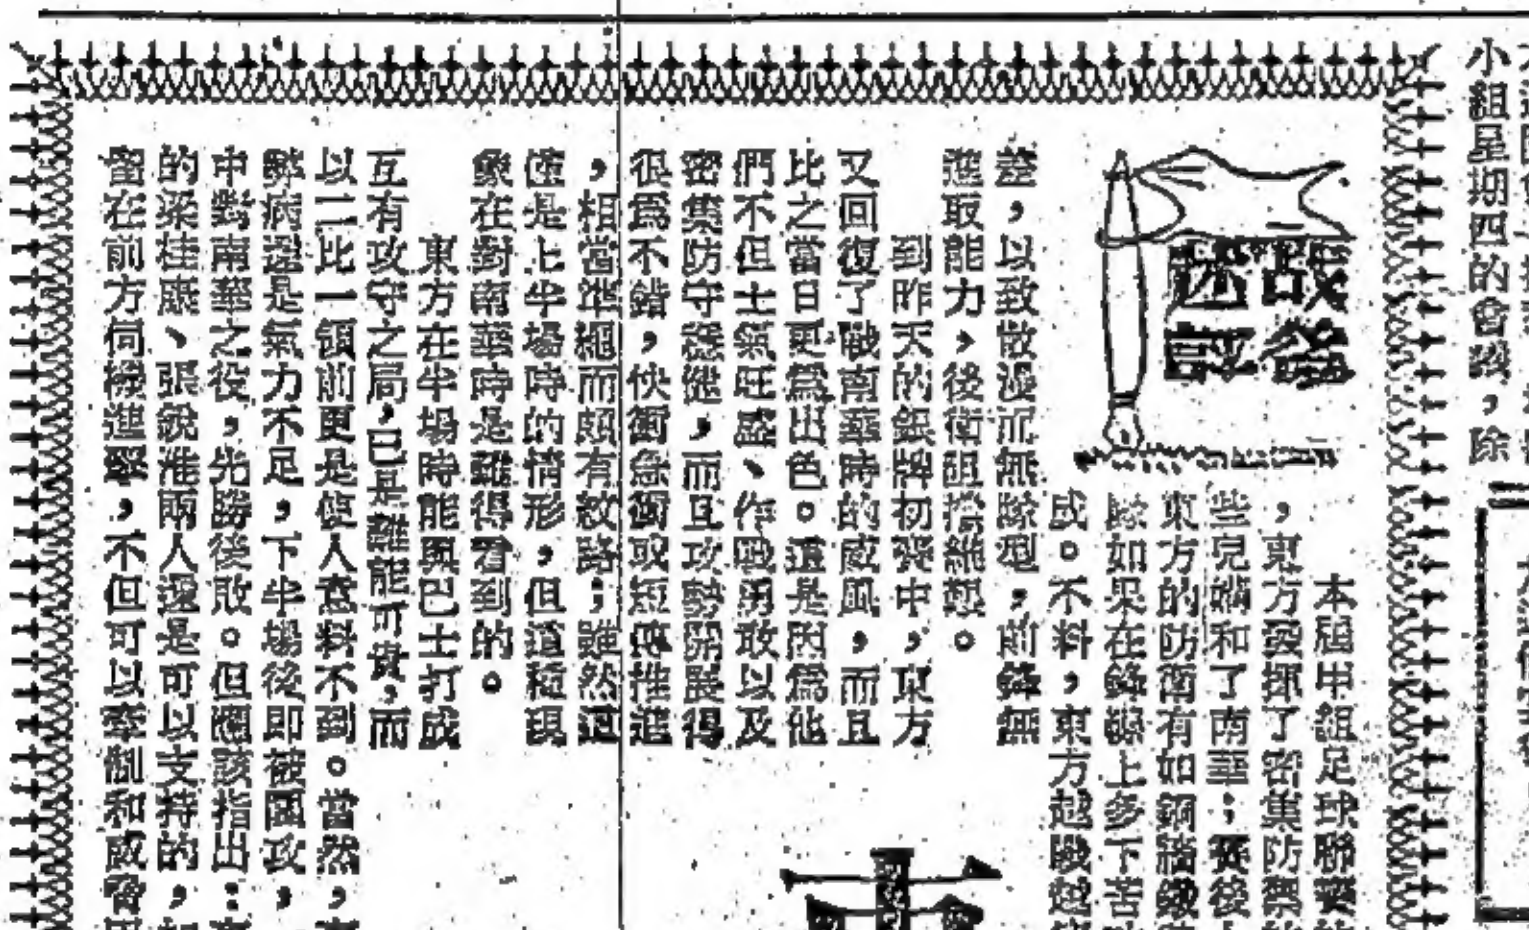 小組星期四的會議，除
戰後
評
本屆甲組足球聯賽
，東方發揮了密集防禦
些兒嬴和了南華；賽後
東方的防衛有如銅牆鐵
除如果在鋒線上多下苦
成。不料，東方越戰越
差，以致散漫而無隊型，前鋒無
進取能力，後衛阻擋維艱。
到昨天的銀牌初賽中，東方
又回復了戰南華時的威風，而且
比之當日更爲出色。這是因爲他
們不但士氣旺盛、作戰勇敢以及
密集防守穩健，而且攻勢開展得
很爲不錯，快衝急衝或短傳推進
，相當準繩而頗有紋路；雖然這
僅是上半場時的情形，但這種現
象在對南華時是難得看到的。
東方在半場時能與巴士打成
互有攻守之局，已是難能可貴，而
以二比一領前更是使人意料不到。當然，
弊病還是氣力不足，下半場後即被圍攻，
中對南華之役，先勝後敗。但應該指出：
的梁桂康、張銳淮兩人還是可以支持的，
留在前方伺機進擊，不但可以牽制和威脅